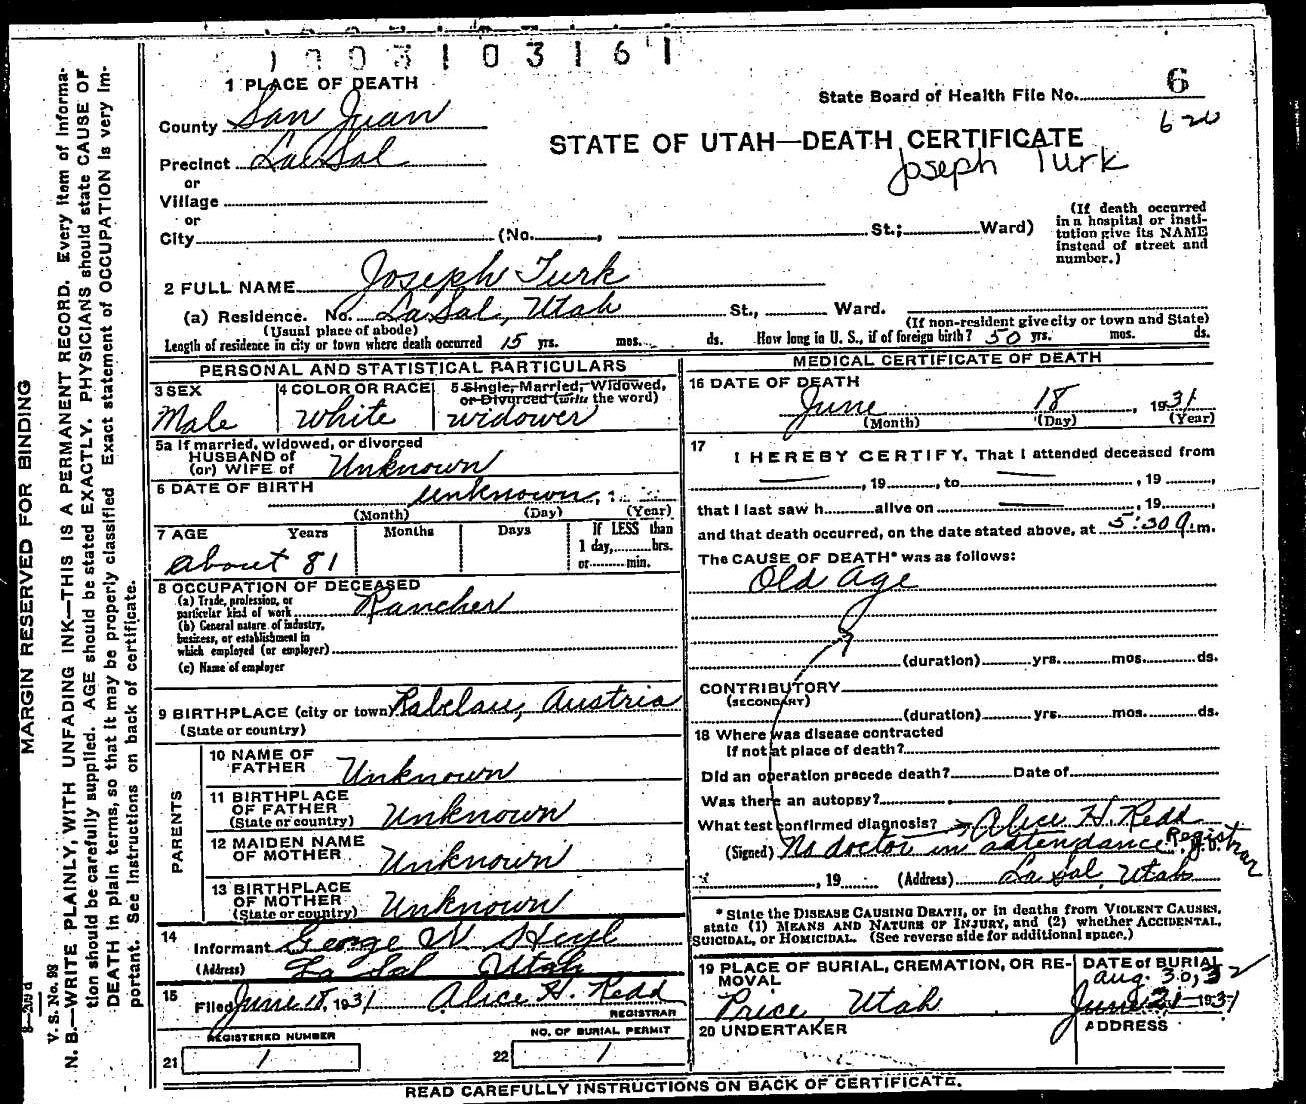 1003103161
1 PLACE OF DEATH
State Board of Health File No. 6
620
County San Juan
STATE OF UTAH—DEATH CERTIFICATE
Joseph Turk
Precinct La Sal
or
Village
or
City (No. , St.; Ward)
(If death occurred in a hospital or insti-
tution give its NAME
instead of street and
number.)
2 FULL NAME Joseph Turk
(a) Residence. No. La Sal, Utah St., Ward.
(Usual place of abode)
(If non-resident give city or town and State)
Length of residence in city or town where death occurred 15 yrs. mos. ds. How long in U. S., if of foreign birth? 50 yrs. mos. ds.
PERSONAL AND STATISTICAL PARTICULARS
3 SEX
Male
4 COLOR OR RACE
White
5 Single, Married, Widowed,
or Divorced (write the word)
widower
5a If married, widowed, or divorced
HUSBAND of
(or) WIFE of Unknown
6 DATE OF BIRTH unknown, 1
(Month) (Day) (Year)
7 AGE Years Months Days If LESS than
1 day, hrs.
or min.
about 81
8 OCCUPATION OF DECEASED
(a) Trade, profession, or
particular kind of work Rancher
(b) General nature of industry,
business, or establishment in
which employed (or employer)
(c) Name of employer
9 BIRTHPLACE (city or town) Austria
(State or country)
PARENTS
10 NAME OF
FATHER Unknown
11 BIRTHPLACE
OF FATHER
(State or country) Unknown
12 MAIDEN NAME
OF MOTHER Unknown
13 BIRTHPLACE
OF MOTHER
(State or country) Unknown
14
Informant George W.
(Address) La Sal Utah
15
Filed June 18, 1931 Alice H. Redd
REGISTRAR
REGISTERED NUMBER
21 1
NO. OF BURIAL PERMIT
22 1
MEDICAL CERTIFICATE OF DEATH
16 DATE OF DEATH
June 18, 1931
(Month) (Day) (Year)
17
I HEREBY CERTIFY, That I attended deceased from
, 19 , to , 19 ,
that I last saw h alive on , 19 ,
and that death occurred, on the date stated above, at 5:30 m.
The CAUSE OF DEATH* was as follows:
Old age
(duration) yrs. mos. ds.
CONTRIBUTORY
(SECONDARY)
(duration) yrs. mos. ds.
18 Where was disease contracted
If not at place of death?
Did an operation precede death? Date of
Was there an autopsy?
What test confirmed diagnosis? Alice H. Redd
(Signed) No doctor in attendance Registrar M. D.
, 19 (Address) La Sal, Utah
* State the DISEASE CAUSING DEATH, or in deaths from VIOLENT CAUSES,
state (1) MEANS AND NATURE OF INJURY, and (2) whether ACCIDENTAL,
SUICIDAL, or HOMICIDAL. (See reverse side for additional space.)
19 PLACE OF BURIAL, CREMATION, OR RE-
MOVAL
Price, Utah
DATE OF BURIAL
Aug. 30, 32
June 21 1931
20 UNDERTAKER
ADDRESS
READ CAREFULLY INSTRUCTIONS ON BACK OF CERTIFICATE.
MARGIN RESERVED FOR BINDING
V. S. No. 98
N. B.—WRITE PLAINLY, WITH UNFADING INK—THIS IS A PERMANENT RECORD. Every item of informa-
tion should be carefully supplied. AGE should be stated EXACTLY. PHYSICIANS should state CAUSE OF
DEATH in plain terms, so that it may be properly classified Exact statement of OCCUPATION is very im-
portant. See instructions on back of certificate.